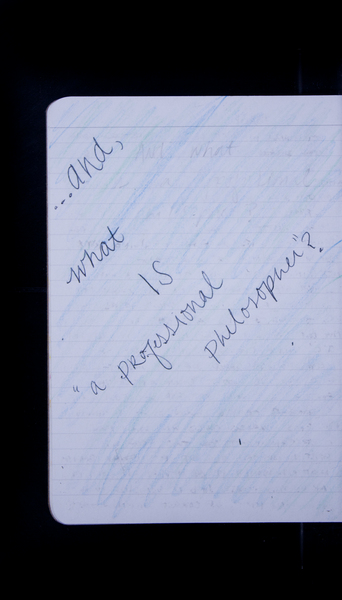 ...and,
what
IS
"a professional
philosopher"?